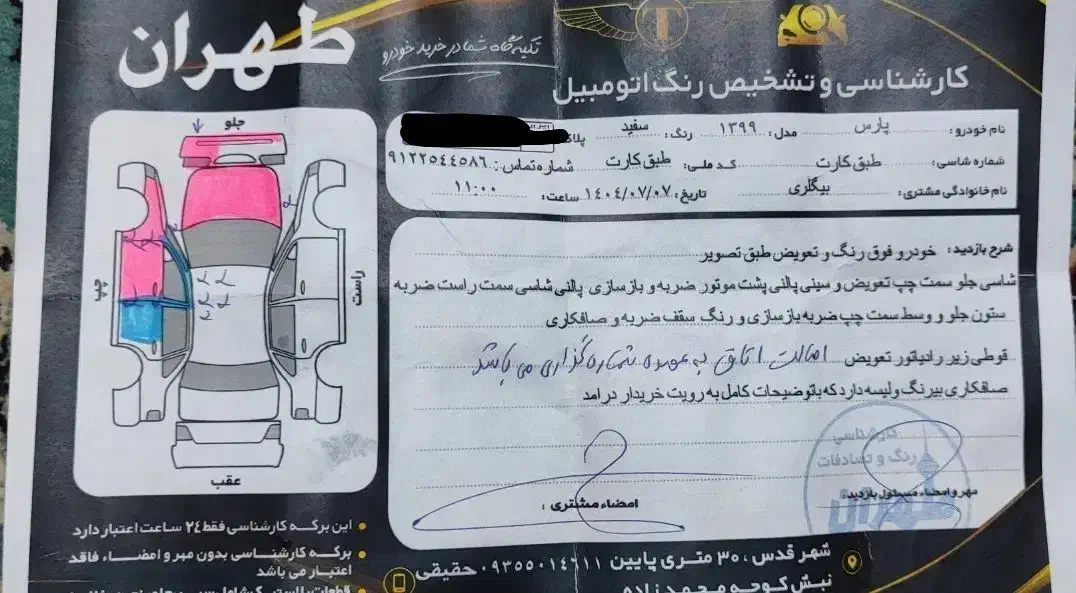 طهران
تکیه گاه شما در خرید خودرو
کارشناسی و تشخیص رنگ اتومبیل
نام خودرو: پارس مدل: ۱۳۹۹ رنگ: سفید پلاک
شماره شاسی: طبق کارت کد ملی: طبق کارت شماره تماس: ۹۱۲۲۵۴۴۵۸۶
نام خانوادگی مشتری: بیگلری تاریخ: ۱۴۰۴/۰۷/۰۷ ساعت: ۱۱:۰۰
جلو
چپ
راست
عقب
شرح بازدید: خودرو فوق رنگ و تعویض طبق تصویر
شاسی جلو سمت چپ تعویض و سینی پالنی پشت موتور ضربه و بازسازی پالنی شاسی سمت راست ضربه
ستون جلو و وسط سمت چپ ضربه بازسازی و رنگ سقف ضربه و صافکاری
قوطی زیر رادیاتور تعویض اصالت اتاق به عهده شماره گذاری می باشد
صافکاری بیرنگ ولیسه دارد که باتوضیحات کامل به رویت خریدار در امد
کارشناسی
رنگ و تصادفات
طهران
مهر و امضاء مسئول بازدید:
امضاء مشتری:
این برگه کارشناسی فقط ۲۴ ساعت اعتبار دارد
برگه کارشناسی بدون مهر و امضاء فاقد
اعتبار می باشد
شهر قدس، ۳۰ متری پایین
نبش کوچه محمدزاده
حقیقی